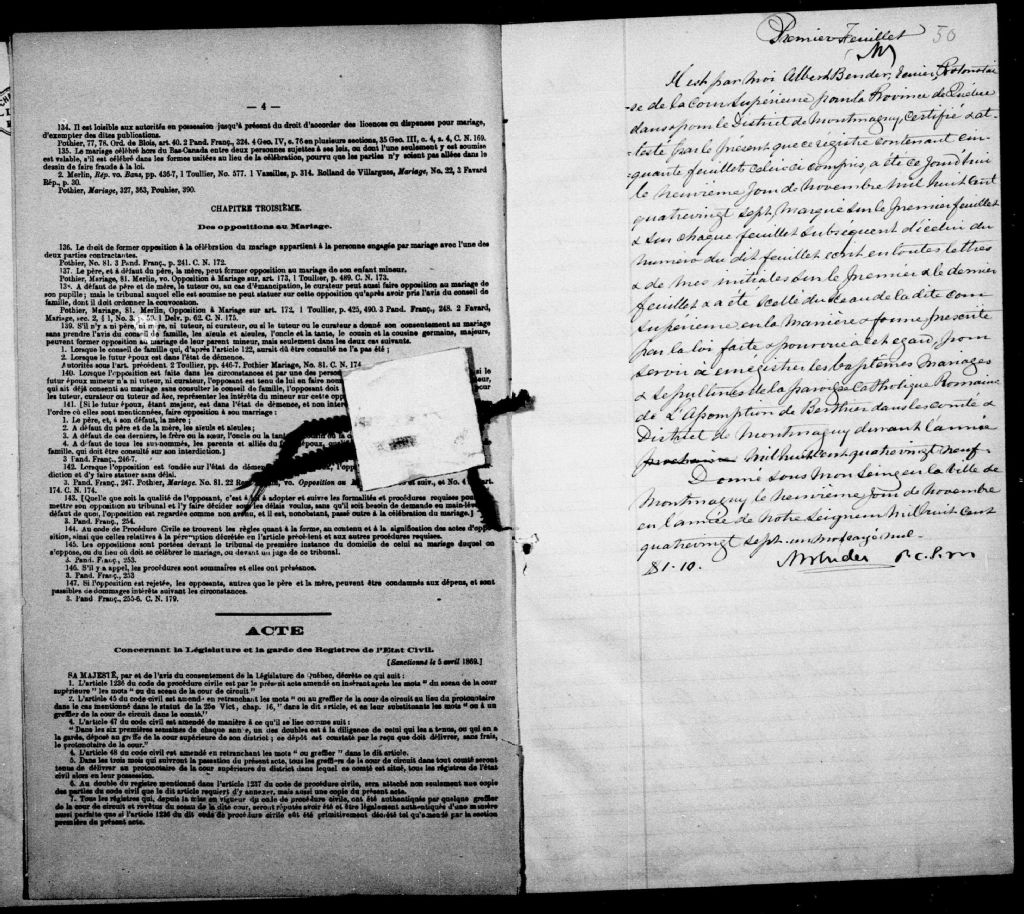 — 4 —
134. Il est loisible aux autorités en possession jusqu'à présent du droit d'accorder des licences ou dispenses pour mariage,
d'exempter des dites publications.
Pothier, 77, 78. Ord. de Blois, art. 40. 2 Pand. Franç., 324. 4 Geo. IV, c. 76 en plusieurs sections, 35 Geo. III, c. 4, s. 4, C. N. 169.
135. Le mariage célébré hors du Bas-Canada entre deux personnes sujettes à ses lois, ou dont l'une seulement y est soumise
est valable, s'il est célébré dans les formes usitées au lieu de la célébration, pourvu que les parties n'y soient pas allées dans le
dessein de faire fraude à la loi.
2. Merlin, Rép. vo. Bans, pp. 436-7, 1 Toullier, No. 577. 1 Vassilles, p. 314. Rolland de Villargues, Mariage, No. 22, 3 Favard
Rép., p. 30.
Pothier, Mariage, 327, 363, Pouhier, 390.
CHAPITRE TROISIÈME.
Des oppositions au Mariage.
136. Le droit de former opposition à la célébration du mariage appartient à la personne engagée par mariage avec l'une des
deux parties contractantes.
Pothier, No. 81. 3 Pand. Franç., p. 241. C. N. 172.
137. Le père, et à défaut du père, la mère, peut former opposition au mariage de son enfant mineur.
Pothier, Mariage, 81. Merlin, vo. Opposition à Mariage sur art. 173, 1 Toullier, p. 489. C. N. 173.
138. A défaut de père et de mère, le tuteur ou, au cas d'émancipation, le curateur peut aussi faire opposition au mariage de
son pupille; mais le tribunal auquel elle est soumise ne peut statuer sur cette opposition qu'après avoir pris l'avis du conseil de
famille, dont il doit ordonner la convocation.
Pothier, Mariage, 81. Merlin, Opposition à Mariage sur art. 172, 1 Toullier, p. 425, 490. 3 Pand. Franç., 248. 2 Favard,
Mariage, sec. 2, § 1, No. 3, p. 59. 1 Delv. p. 62 C. N. 175.
139. S'il n'y a ni père, ni mère, ni tuteur, ni curateur, ou si le tuteur ou le curateur a donné son consentement au mariage
sans prendre l'avis du conseil de famille, les aïeuls et aïeules, l'oncle et la tante, le cousin et la cousine germains, majeurs,
peuvent former opposition au mariage de leur parent mineur, mais seulement dans les deux cas suivants.
1. Lorsque le conseil de famille qui, d'après l'article 122, aurait dû être consulté ne l'a pas été;
2. Lorsque le futur époux est dans l'état de démence.
Autorités sous l'art. précédent. 2 Toullier, pp. 446-7. Pothier Mariage, No. 81. C. N. 174
140. Lorsque l'opposition est faite dans les circonstances et par une des personnes si le
futur époux mineur n'a ni tuteur, ni curateur, l'opposant est tenu de lui en faire nommer
qui ait déjà consenti au mariage sans consulter le conseil de famille, l'opposant doit
les tuteur, curateur ou tuteur ad hoc, représenter les intérêts du mineur sur cette opposition
141. [Si le futur époux, étant majeur, est dans l'état de démence, et non interdit
l'ordre où elles sont mentionnées, faire opposition à son mariage:
1. Le père, et, à son défaut, la mère;
2. A défaut du père et de la mère, les aïeuls et aïeules;
3. A défaut de ces derniers, le frère ou la sœur, l'oncle ou la tante
4. A défaut de tous les sus-nommés, les parents et alliés du futur époux,
famille, qui doit être consulté sur son interdiction.]
3 Pand. Franç., 246-7.
142. Lorsque l'opposition est fondée sur l'état de démence
diction et d'y faire statuer sans délai.
3. Pand. Franç., 247. Pothier, Mariage. No. 81. 22
174. C. N. 174.
143. [Quelle que soit la qualité de l'opposant, c'est à lui à adopter et suivre les formalités et procédures requises pour
mettre son opposition au tribunal et l'y faire décider dans les délais voulus, sans qu'il soit besoin de demande en main-levée
défaut de quoi, l'opposition est regardée comme non avenue, et il est, nonobstant, passé outre à la célébration du mariage.]
3. Pand. Franç., 254.
144. Au code de Procédure Civile se trouvent les règles quant à la forme, au contenu et à la signification des actes d'opposition,
sition, ainsi que celles relatives à la péremption décrétée en l'article précédent et aux autres procédures requises.
145. Les oppositions sont portées devant le tribunal de première instance du domicile de celui au mariage duquel on
s'oppose, ou du lieu où doit se célébrer le mariage, ou devant un juge de ce tribunal.
3. Pand. Franç., 253.
146. S'il y a appel, les procédures sont sommaires et elles ont préséance.
3. Pand. Franç., 253
147. Si l'opposition est rejetée, les opposants, autres que le père et la mère, peuvent être condamnés aux dépens, et sont
passibles de dommages intérêts suivant les circonstances.
3. Pand. Franç., 255-6. C. N. 179.
ACTE
Concernant la Législature et la garde des Registres de l'Etat Civil.
[Sanctionné le 5 avril 1869.]
SA MAJESTÉ, par et de l'avis du consentement de la Législature de Québec, décrète ce qui suit:
1. L'article 1236 du code de procédure civile est par le présent acte amendé en insérant après les mots "du sceau de la cour
supérieure" les mots "ou du sceau de la cour de circuit."
2. L'article 45 du code civil est amendé en retranchant les mots "ou au greffier de la cour de circuit au lieu du protonotaire
dans le cas mentionné dans le statut de la 25e Vict, chap. 16," dans le dit article, et en leur substituants les mots "ou à un
greffier de la cour de circuit dans le comté."
4. L'article 47 du code civil est amendé de manière à ce qu'il se lise comme suit:
"Dans les six premières semaines de chaque année, un des doubles est à la diligence de celui qui les a tenus, ou qui en a
la garde, déposé au greffe de la cour supérieure de son district; ce dépôt est constaté par le reçu que doit délivrer, sans frais,
le protonotaire de la cour."
4. L'article 48 du code civil est amendé en retranchant les mots "ou greffier" dans le dit article.
5. Dans les trois mois qui suivront la passation du présent acte, tous les greffiers de la cour de circuit dans tout comté seront
tenus de délivrer au protonotaire de la cour supérieure du district dans lequel ce comté est situé, tous les registres de l'état
civil alors en leur possession.
6. Au double du registre mentionné dans l'article 1237 du code de procédure civile, sera attaché non seulement une copie
des parties du code civil que le dit article requiert d'y annexer, mais aussi une copie du présent acte.
7. Tous les régistres qui, depuis la mise en vigueur du code de procédure civile, ont été authentiqués par quelque greffier
de la cour de circuit et revêtus du sceau de la dite cour, seront réputés avoir été et être légalement authentiqués d'une manière
aussi parfaite que si l'article 1236 du dit code de procédure civile eût été primitivement décrété tel qu'amendé par la section
première du présent acte.
Premier Feuillet 50
Il est par moi Albert Bender, Ecuier, Protonotai
-re de la Cour Supérieure pour la Province de Québec
dans & pour le District de Montmagny, Certifié & at-
-testé par le present que ce registre contenant cin-
quante feuillets celui ci compris, a été ce jourd'hui
le neuvième jour de Novembre mil huit cent
quatrevingt sept, marqué sur le premier feuillet
& sur chaque feuillet subséquent d'icelui du
numero du dit feuillet ecrit en toutes lettres
& de mes initiales sur le premier & le dernier
feuillet & a été scellé du sceau de la dite cour
Supérieure en la manière & forme prescrite
par la loi faite & pourvue à cet egard, pour
servir à enregistrer les baptêmes Mariages
& Sepultures de la paroisse Catholique Romaine
de L'Assomption de Berthier dans les comté &
District de Montmagny durant l'année
prochaine mil huit cent quatrevingt neuf
Donné sous mon Seing en la ville de
Montmagny le neuvième jour de Novembre
en l'année de Notre Seigneur mil huit cent
quatrevingt sept.
$1.10. ABender P.C.S.M